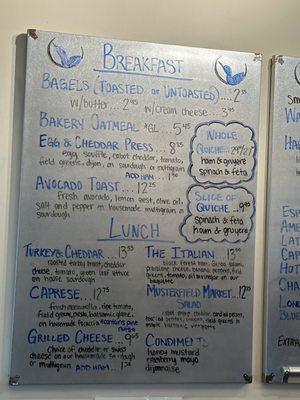 BREAKFAST
BAGELS (TOASTED OR UNTOASTED).... 2.35
w/butter.. 2.95 w/cream cheese.. 3.95
BAKERY OATMEAL *GL. 5.45
EGG & CHEDDAR PRESS... 8.35
egg souffle, cabot cheddar, tomato,
field greens, dijon, on sourdough or
multigrain
ADD HAM. 1.50
AVOCADO TOAST... 12.25
fresh avocado, lemon zest, olive oil,
salt and pepper on housemade multigrain or
sourdough
WHOLE
QUICHE..
ham & gruyere
spinach & feta
SLICE OF
QUICHE... 9.95
spinach & feta
ham & gruyere
LUNCH
TURKEY & CHEDDAR... 13.95
roasted turkey, cheddar
cheese, tomato, green leaf lettuce
on house sourdough
CAPRESE... 12.75
fresh mozzarella, ripe tomato,
field greens, fresh basil,
on homemade focaccia *contains pine
nuts
GRILLED CHEESE... 9.65
Choice of cheddar or swiss
cheese on our housemade sourdough
or multigrain ADD HAM. 1.50
THE ITALIAN 13.95
black forest ham, Genoa salami,
provolone cheese, banana peppers, field
greens, tomato, on our
baguette
MUSTERFIELD MARKET... 12.25
SALAD
CONDIMENTS
honey mustard
raspberry mayo
dijonnaise